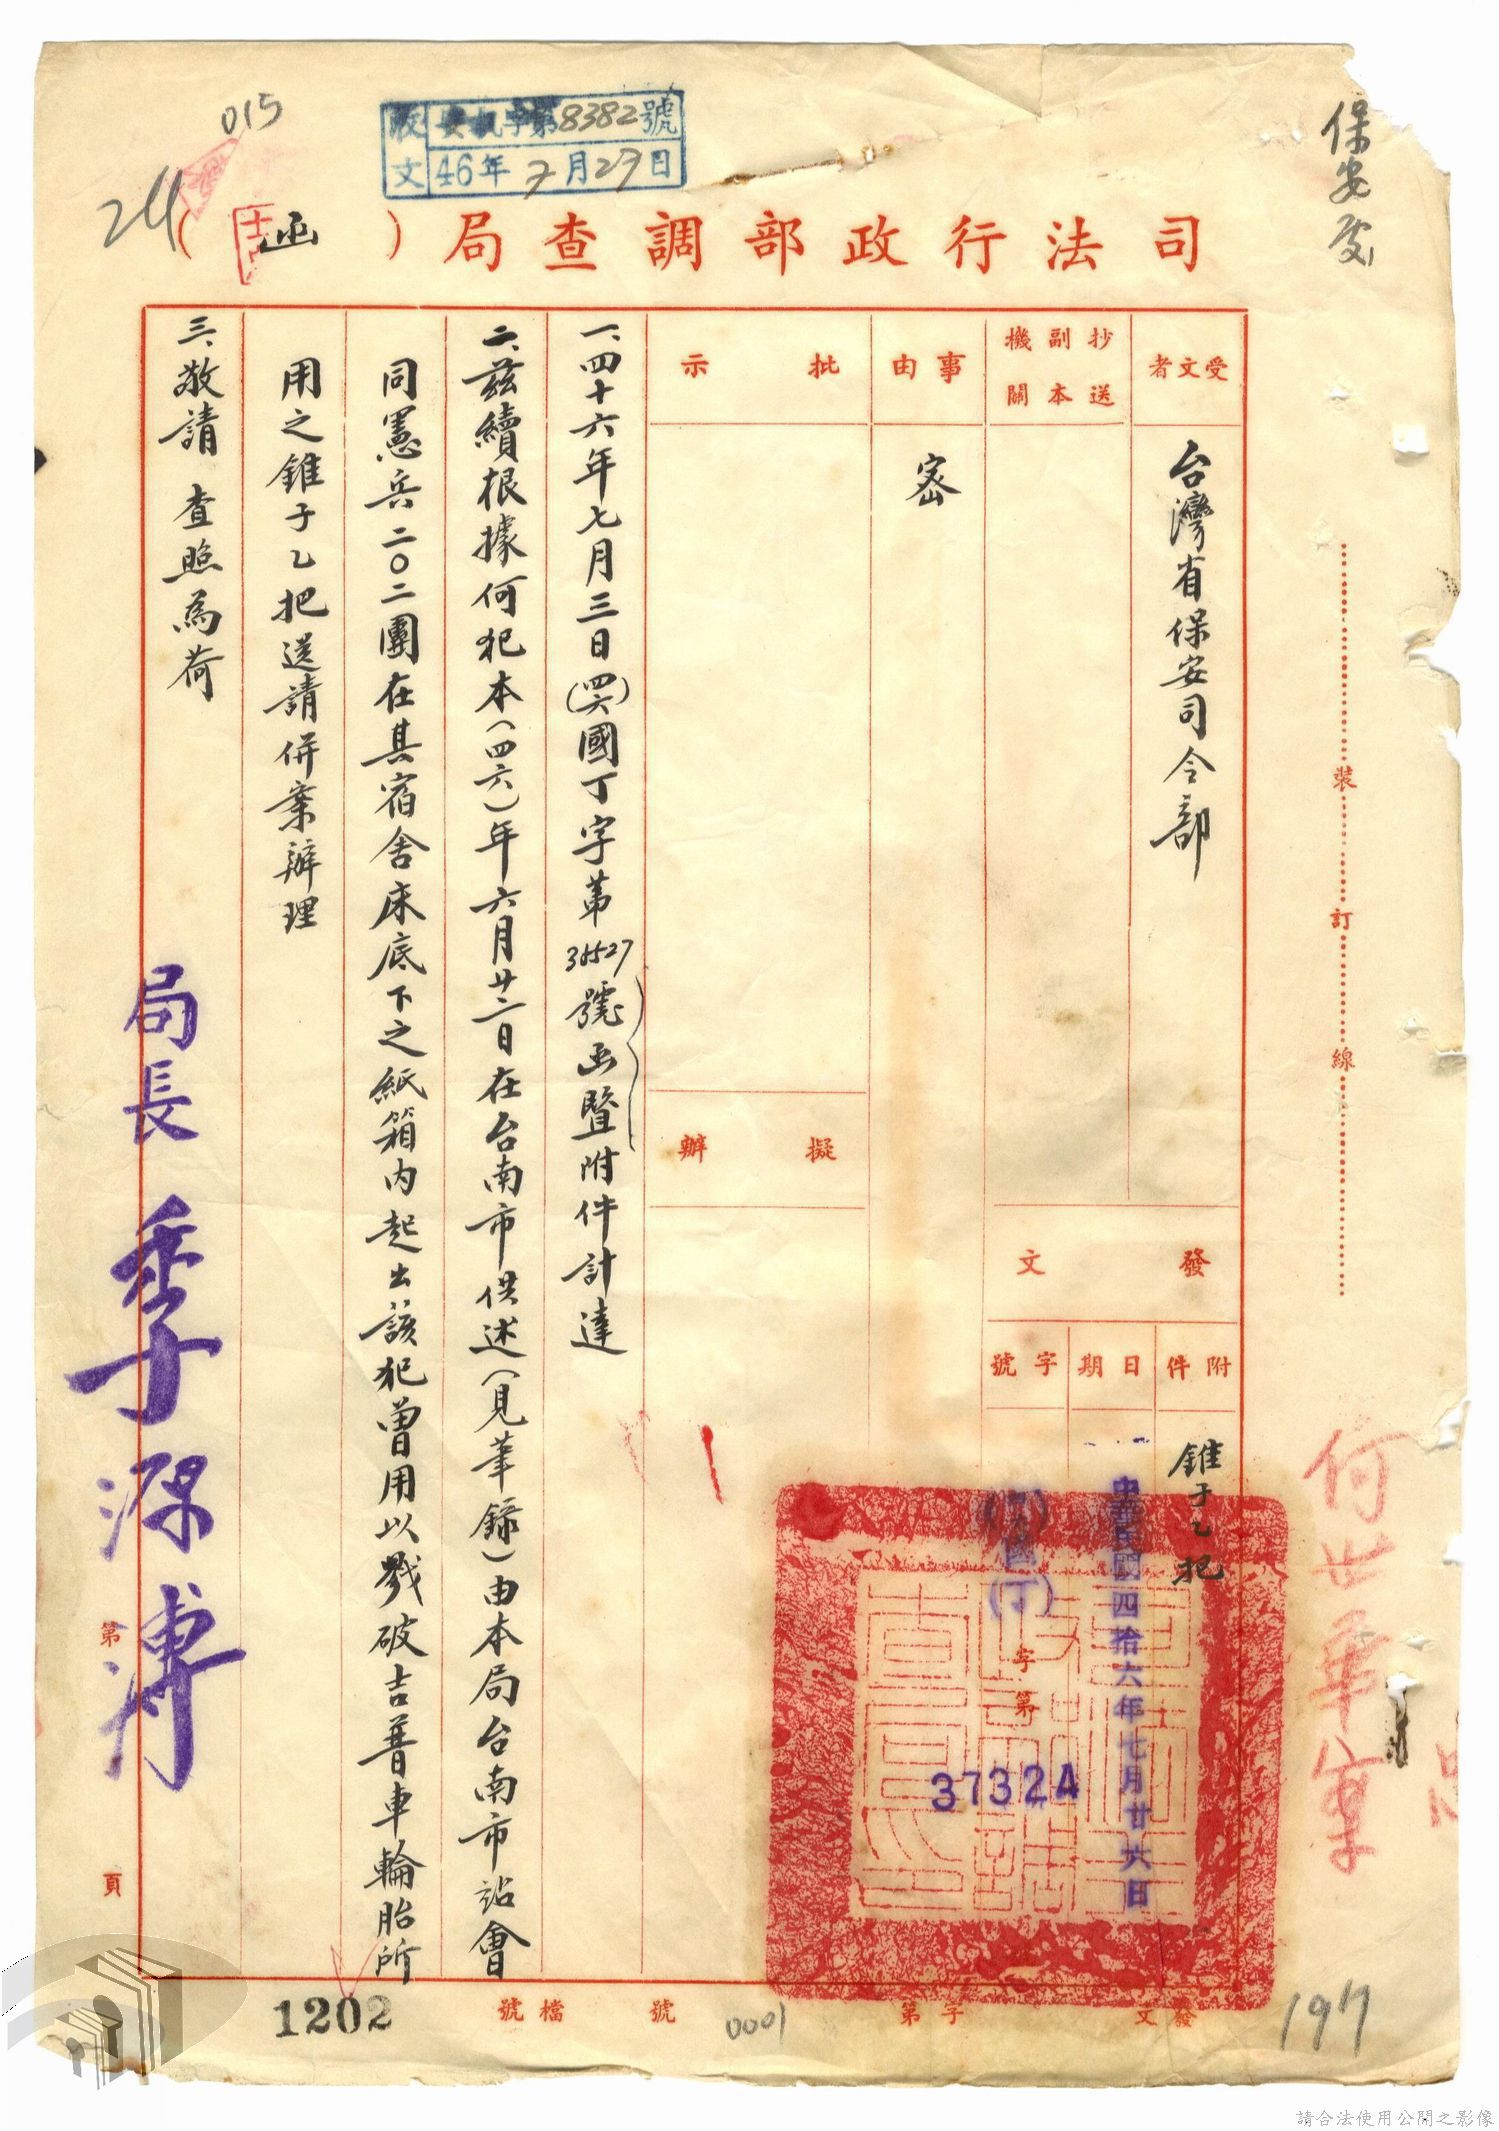 保安處
015
24
收文
安机字第8382號
46年7月27日
司法行政部調查局(函)
受文者
台灣省保安司令部
抄送副本機關
事由
密
批示
擬辦
發文
附件
錐子乙把
日期
中華民國四拾六年七月廿六日
字號
國(丁)
字第
37324
一、四十六年七月三日(四六)國丁字第
號函暨附件計達
二、茲續根據何犯本(四六)年六月廿二日在台南市供述(見筆錄)由本局台南市站會
同憲兵二〇二團在其宿舍床底下之紙箱內起出該犯曾用以戮破吉普車輪胎所
用之錐子乙把送請併案辦理
三、敬請 查照為荷
局長 季源溥
第 頁
裝 訂 線
何世華案
197
發文 字第 0001 號 檔號
1202
請合法使用公開之影像